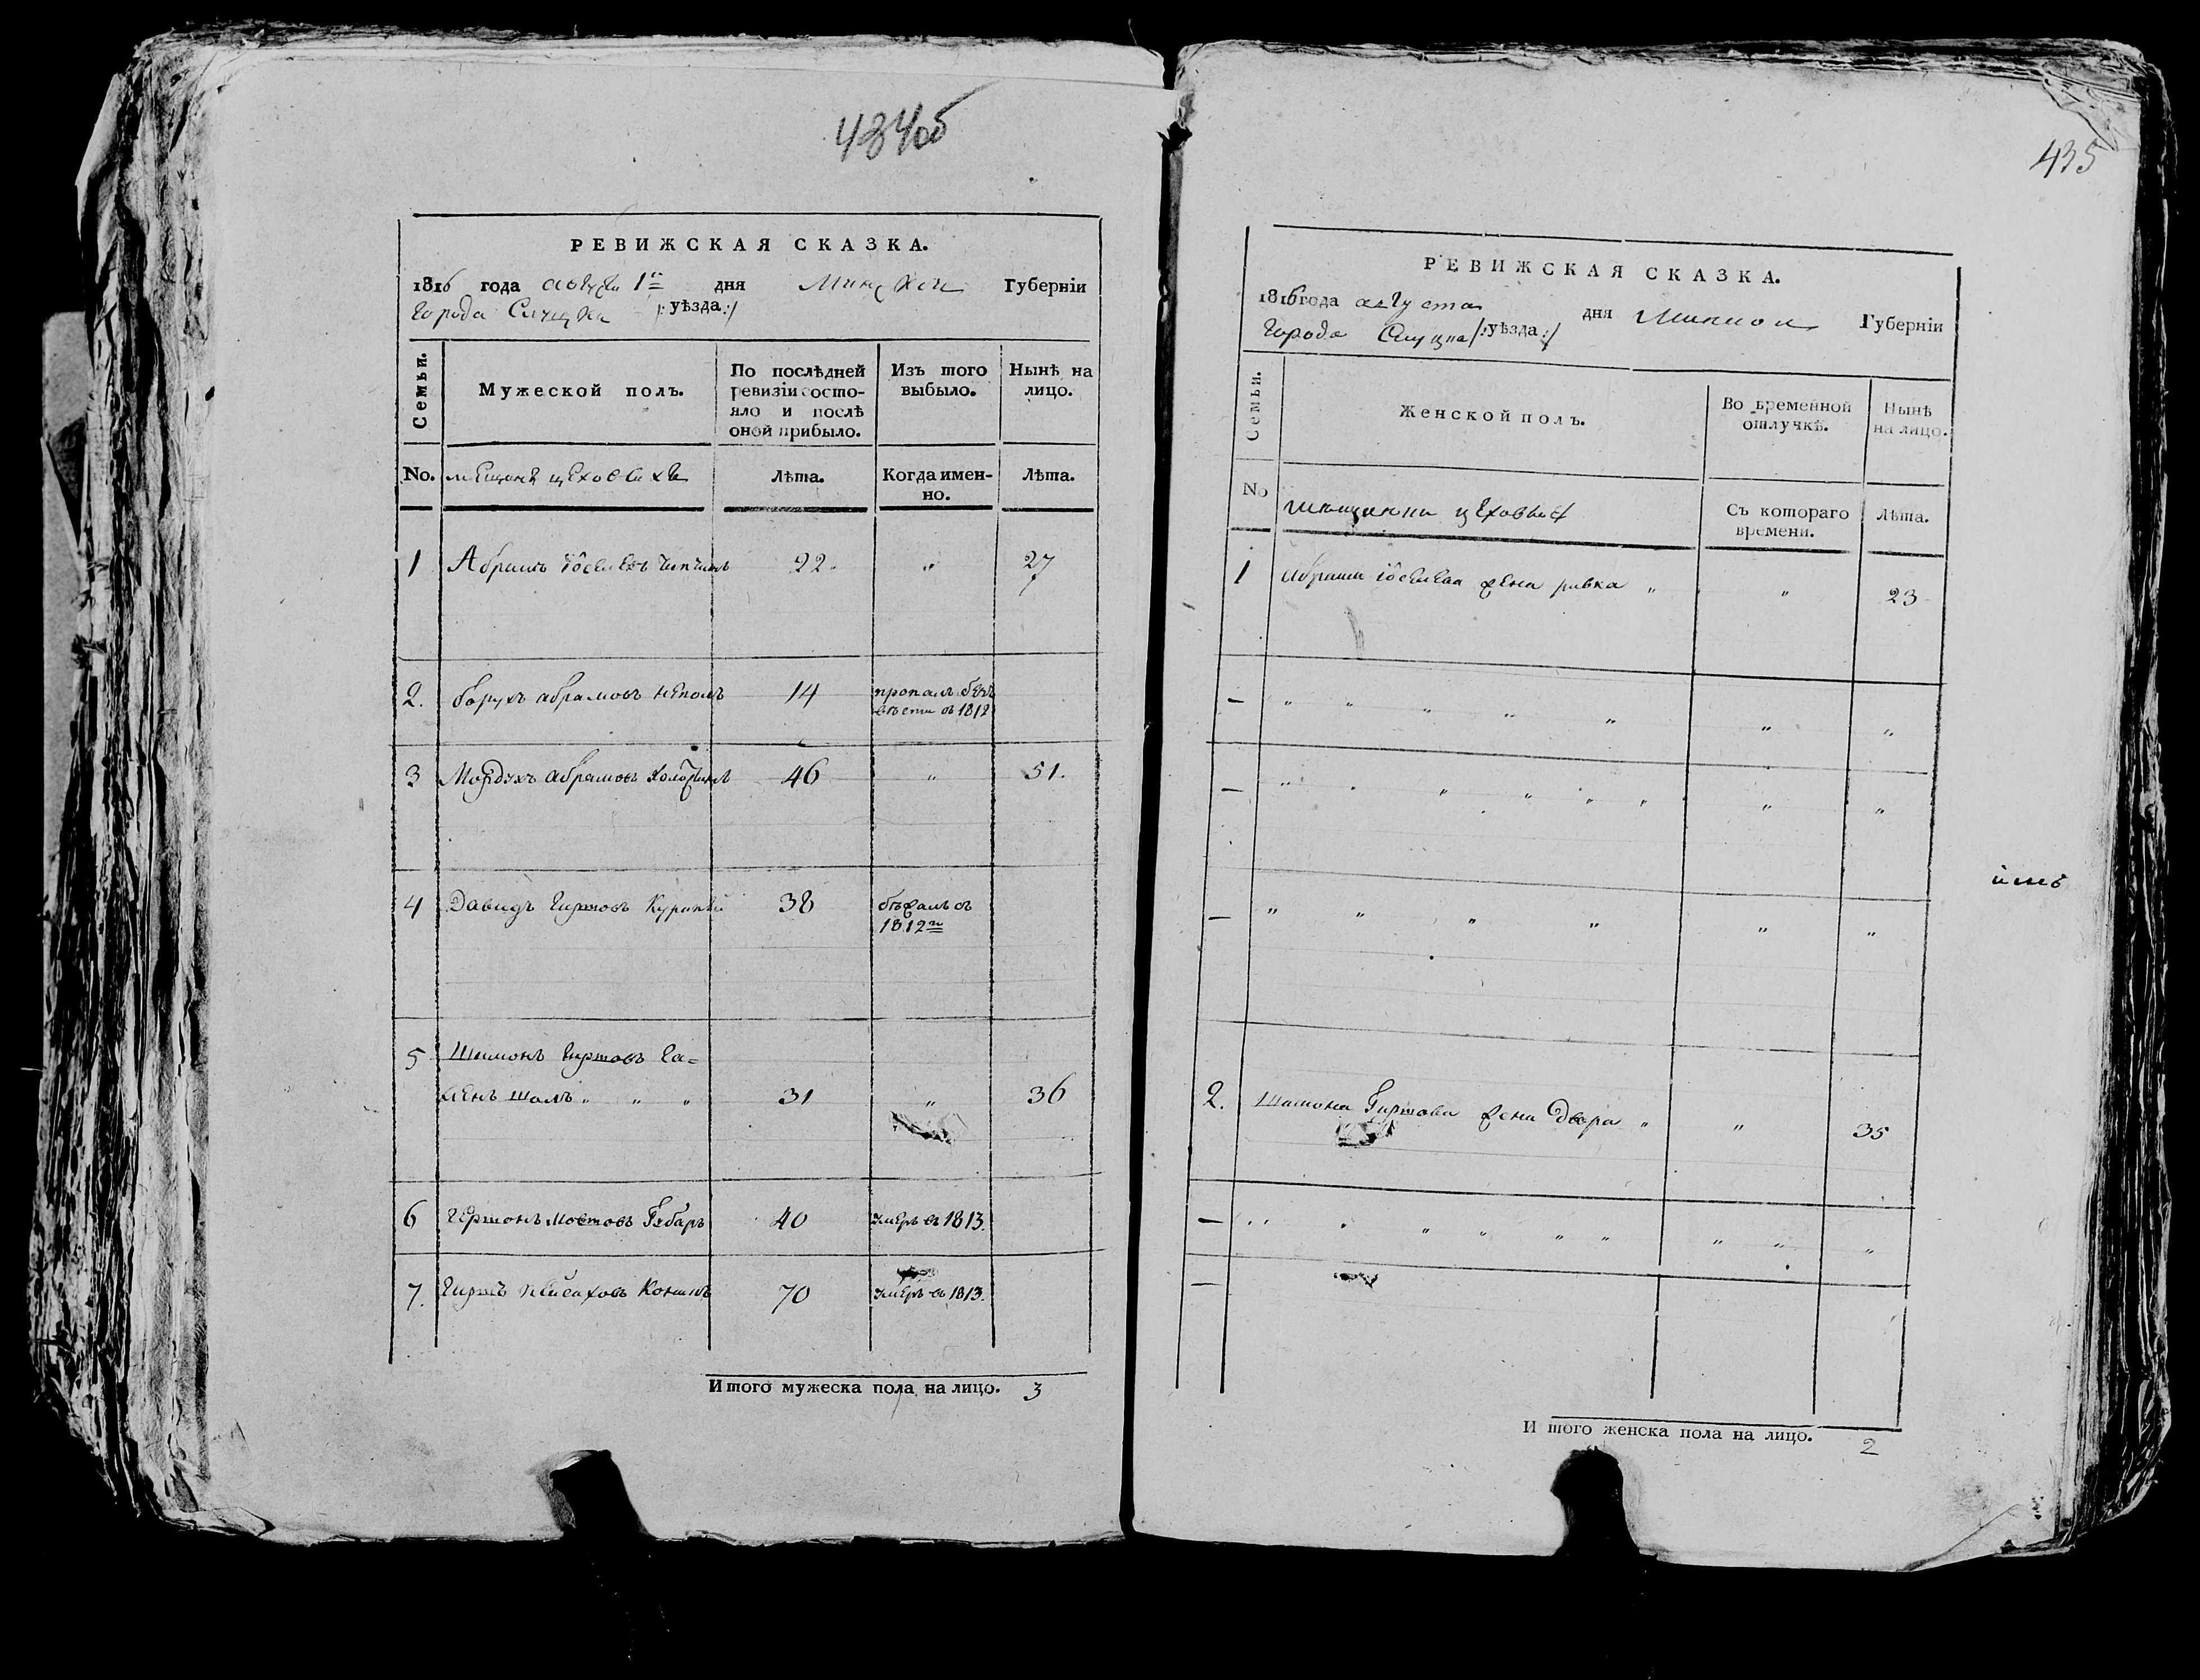 434об
РЕВИЖСКАЯ СКАЗКА.
1816 года августа 1го дня Минской Губерніи
города Слуцка /:уѣзда:/
Семьи.
Мужеской полъ.
По послѣдней ревизіи состо-
яло и послѣ
оной прибыло.
Изъ того
выбыло.
Нынѣ на
лицо.
No. мещанъ цеховыхъ
Лѣта.
Когда имен-
но.
Лѣта.
1 Абрамъ Іоселевъ 22 " 27
2. Борухъ Абрамовъ 14 пропалъ безъ
вѣсти въ 1812
3 Мордухъ Абрамовъ 46 " 51.
4 Давидъ Гиршовъ 38 бѣжалъ въ
1812го
5 Шимонъ Гиршовъ Га=
" " " 31 " 36
6 Гершонъ Мовшовъ Гэбаръ 40 умеръ въ 1813.
7. Гиршъ Пейсаховъ 70 умеръ въ 1813.
Итого мужеска пола на лицо. 3
435
РЕВИЖСКАЯ СКАЗКА.
1816 года августа дня Минской Губерніи
города Слуцка /:уѣзда:/
Семьи.
Женской полъ.
Во временной
отлучкѣ.
Нынѣ
на лицо.
No мещанки цеховыя
Съ котораго
времени.
Лѣта.
1 Абрама Іоселева жена Ривка " " 23
— " " " " " " "
— " " " " " " "
— " " " " " "
2. Шимона Гиршова жена Двера " " 35
— " " " " " " " " "
—
И того женска пола на лицо. 2